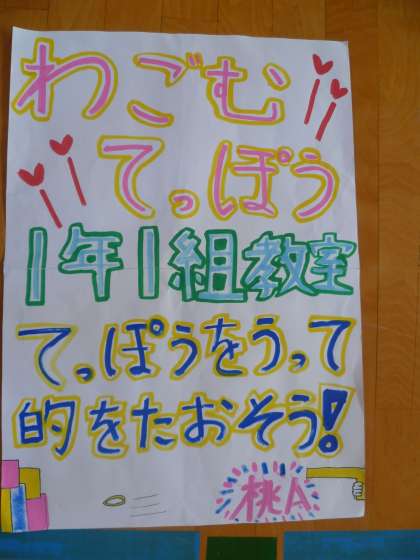 わごむ
てっぽう
1年1組教室
てっぽうをうって
的をたおそう!
桃A